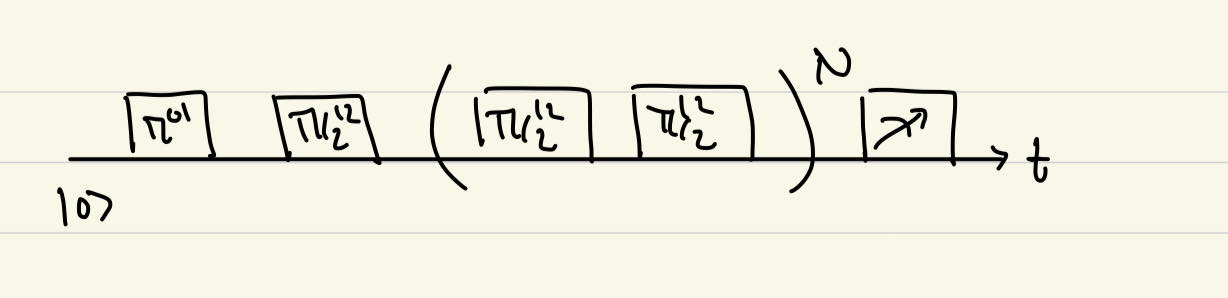 π⁰¹ π/2¹² ( π/2¹² π/2¹² )ᴺ t
|0>